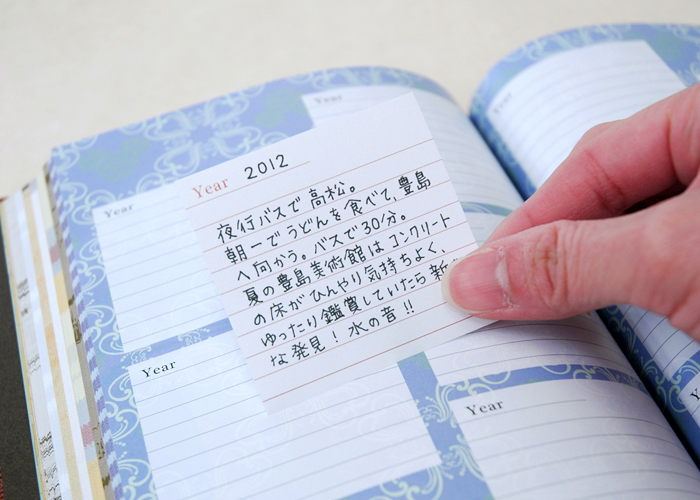 Year 2012
夜行バスで高松。
朝一でうどんを食べて、豊島
へ向かう。バスで30分。
夏の豊島美術館はコンクリート
の床がひんやり気持ちよく、
ゆったり鑑賞していたら新
な発見！水の音!!
Year
Year
Year
Year
Year